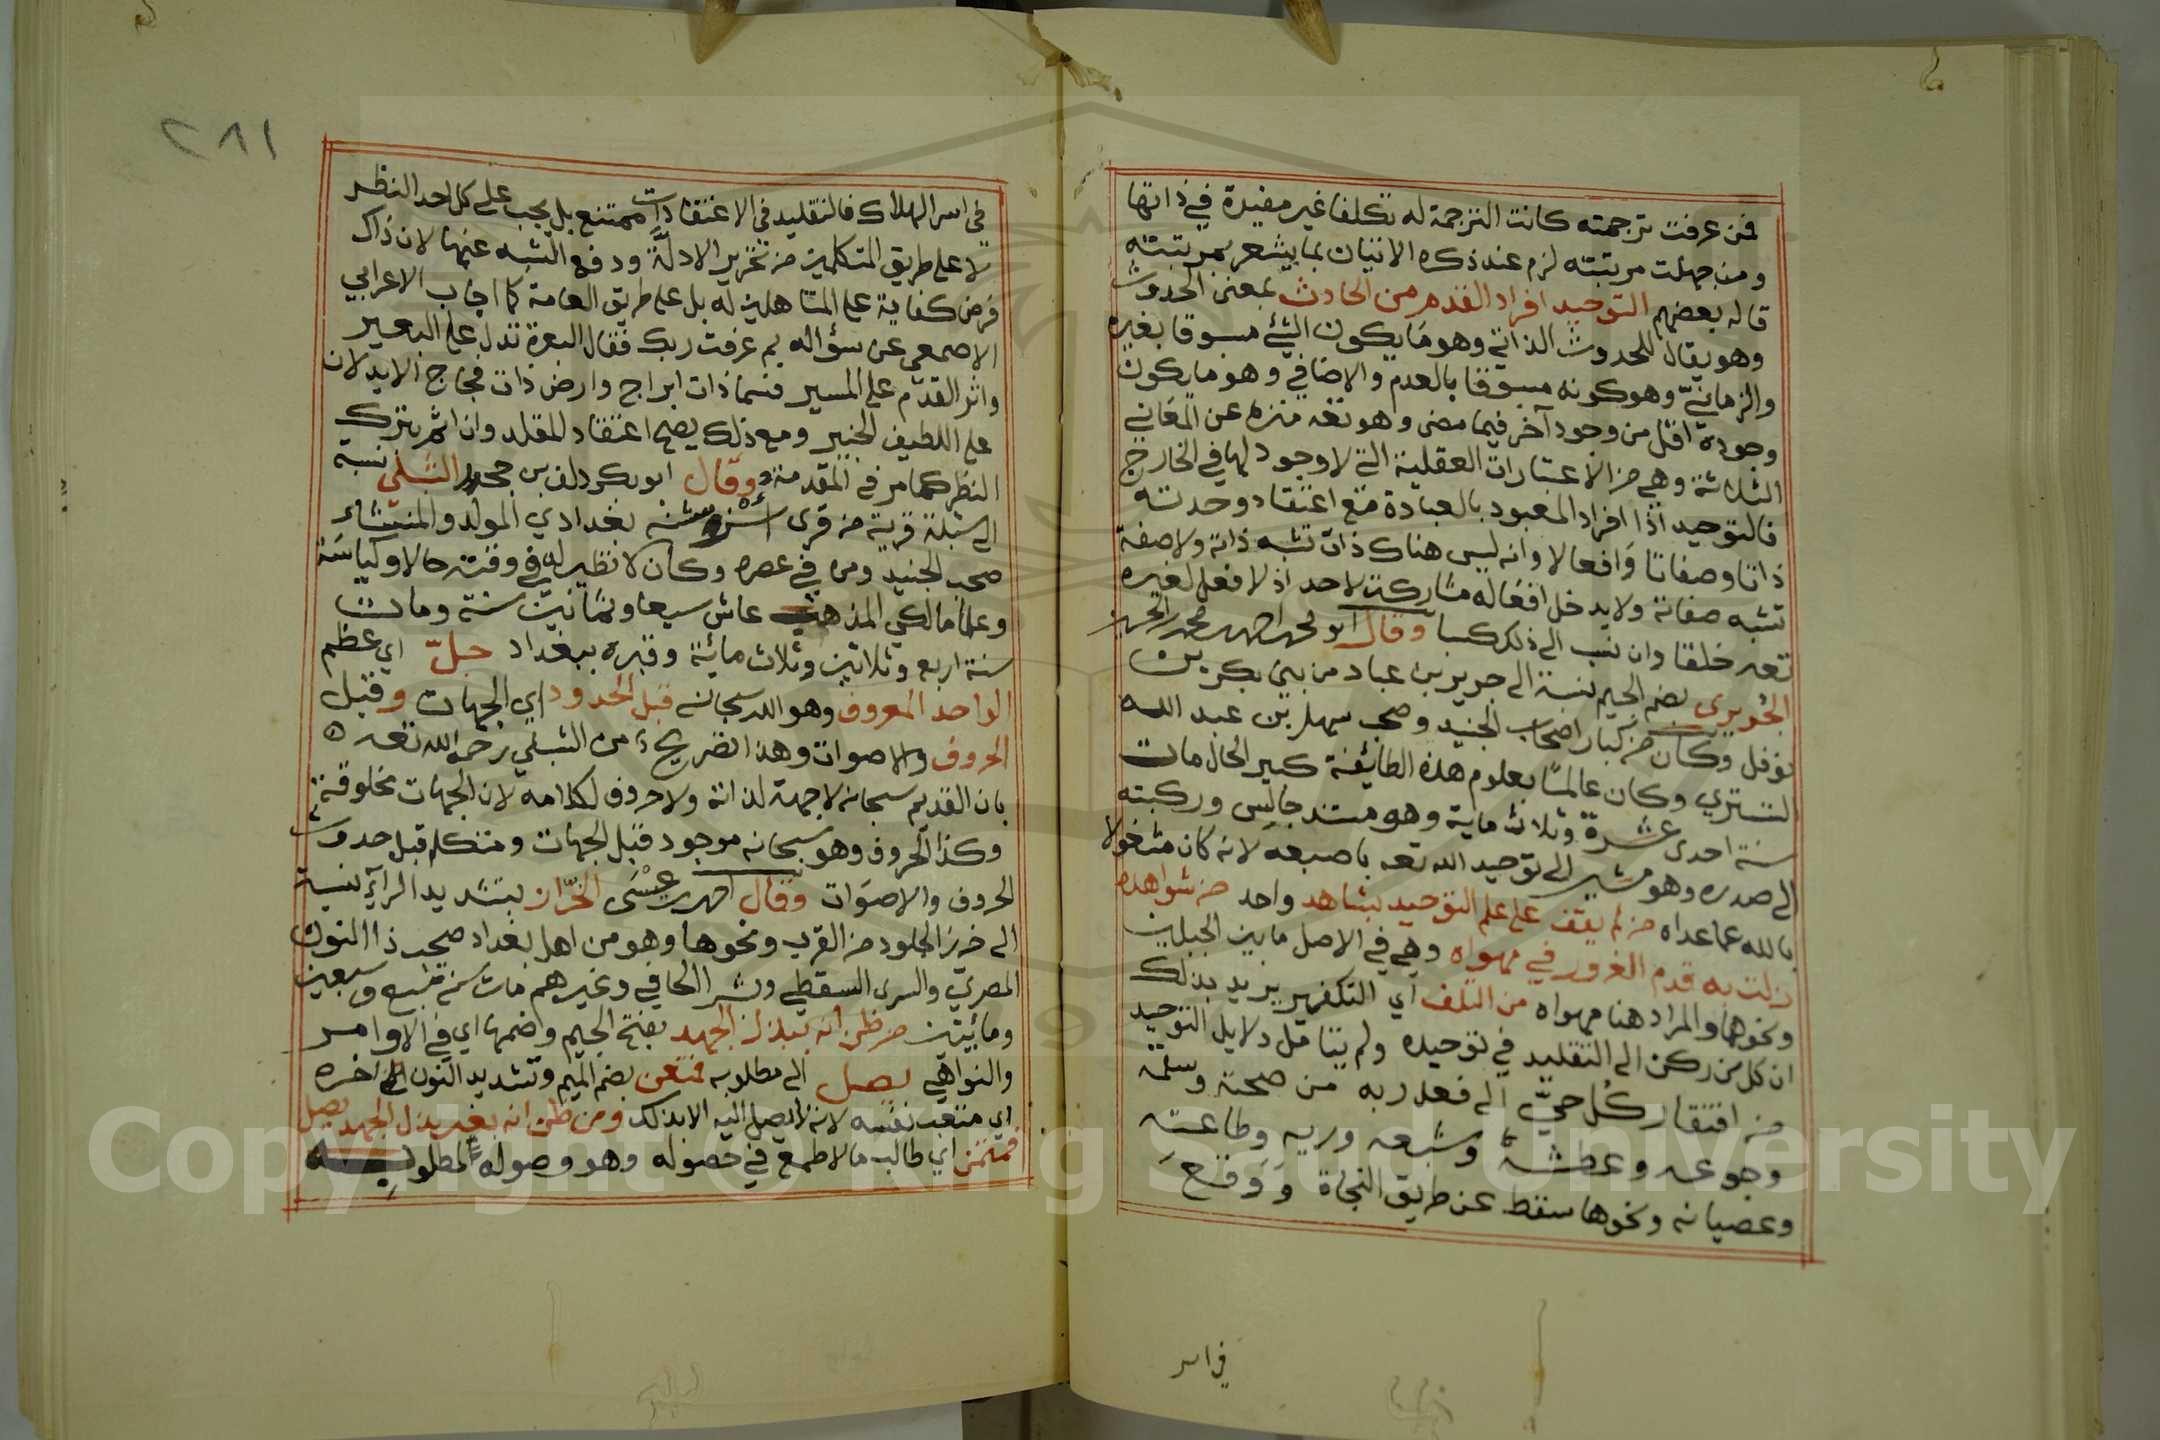 فمن عرفت ترجمته كانت الترجمة له تكلفا غير مفيدة في ذاتها
ومن جهلت مرتبته لزم عند ذكره الاتيان بما يشعر بمرتبته
قاله بعضهم التوحيد افراد القدم من الحادث بمعنى الحدوث
وهو يقال للحدوث الذاتي وهو ما يكون الشئ مسبوقا بغيره
والزماني وهو كونه مسبوقا بالعدم والاضافي وهو ما يكون
وجوده اقل من وجود آخر فيما مضى وهو تعه منزه عن المعاني
الثلاثة وهي من الاعتبارات العقلية التي لا وجود لها في الخارج
فالتوحيد اذا افراد المعبود بالعبادة مع اعتقاد وحدته
ذاتا وصفاتا وافعالا وانه ليس هناك ذات تشبه ذاته ولا صفة
تشبه صفاته ولا يدخل افعاله مشاركة لاحد اذ لا فعل لغيره
تعه خلقا وان نسب الى ذلك كسبا وقال ابو محمد احمد بن محمد بن الحسين
الجُريري بضم الجيم نسبة الى جرير بن عباد من بني بكر بن
نوفل وكان من كبار اصحاب الجنيد وصحب سهل بن عبد الله
التستري وكان عالما بعلوم هذه الطائفة كبير الحال مات
سنة احدى عشرة وثلاث ماية وهو مستند جالس وركبته
الى صدره وهو مشير الى توحيد الله تعه باصبعه لانه كان مشغولا
بالله عما عداه من لم يقف على علم التوحيد بشاهد واحد من شواهده
زلت به قدم الغرور في مهواه وهي في الاصل ما بين الجبلين
ونحوها والمراد هنا مهواه من التلف اي التكفير يريد بذلك
ان كل من ركن الى التقليد في توحيده ولم يتامل دلايل التوحيد
من افتقار كُل حيّ الى فعل ربه من صحته وسقمه
وجوعه وعطشه وشبعه وريه وطاعته
وعصيانه ونحوها سقط عن طريق النجاة وَوَقَعَ
في اسر
٢٨١
في اسر الهلاك فالتقليد في الاعتقادات ممتنع بل يجب على كل احد النظر
لا على طريق المتكلمين من تحرير الادلة ودفع الشبه عنها لان ذاك
فرض كفاية على المتاهلين له بل على طريق العامة كما اجاب الاعرابي
الاصمعي عن سؤاله بم عرفت ربك فقال البعرة تدل على البعير
واثر القدم على المسير فسما ذات ابراج وارض ذات فجاج الا يدلان
على اللطيف الخبير ومع ذلك يصح اعتقاد المقلد وان اثم بترك
النظر كما مر في المقدمة وقال ابو بكر دلف بن جحدر الشبلي نسبة
الى شبلة قرية من قرى اُسْرُوشَنه بغدادي المولد والمنشاء
صحب الجنيد ومن في عصره وكان لا نظير له في وقته حالا وكياسة
وعلما مالكي المذهب عاش سبعا وثمانين سنة ومات
سنة اربع وثلاثين وثلاث مائة وقبره ببغداد جلّ اي عظم
الواحد المعروف وهو الله سبحانه قبل الحدود اي الجهات وقبل
الحروف والاصوات وهذا تصريح من الشبلي رحمه الله تعه
بان القديم سبحانه لا جهة لذاته ولا حروف لكلامه لان الجهات مخلوقة
وكذا الحروف وهو سبحانه موجود قبل الجهات ومتكلم قبل حدوث
الحروف والاصوات وقال احمد بن عيسى الخرّاز بتشديد الرآء نسبة
الى خرز الجلود من القرب ونحوها وهو من اهل بغداد صحب ذا النون
المصري والسرى السقطي وبشر الحافي وغيرهم مات سنة سبع وسبعين
ومائتين من ظن انه ببذل الجهد بفتح الجيم وضمها اي في الاوامر
والنواهي يصل الى مطلوبه فمتعن بضم الميم وتشديد النون اخره
اي متعب نفسه لانه لا يصل اليه الا بذلك ومن ظن انه بغير بذل الجهد يصل
فمتمن اي طالب ما لا طمع في حصوله وهو وصوله لمطلوبه
Copyright © King Saud University